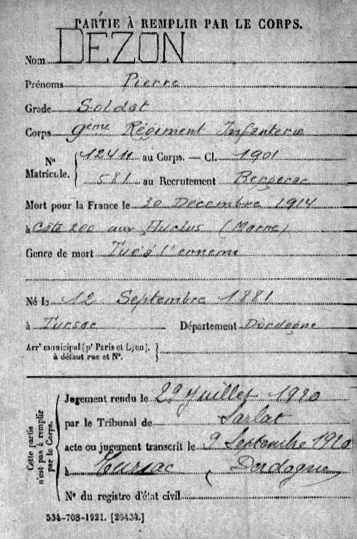 PARTIE À REMPLIR PAR LE CORPS.
Nom DÉZON
Prénoms Pierre
Grade Soldat
Corps 9eme Régiment Infanterie
N° Matricule. 12411 au Corps. — Cl. 1901
581 au Recrutement Bergerac
Mort pour la France le 20 Décembre 1914
à Côte 200 aux Hurlus (Marne)
Genre de mort Tué à l'ennemi
Né le 12 Septembre 1881
à Tursac Département Dordogne
Arrt municipal (pr Paris et Lyon), à défaut rue et N°.
Cette partie n'est pas à remplir par le Corps.
Jugement rendu le 29 Juillet 1920
par le Tribunal de Sarlat
acte ou jugement transcrit le 9 Septembre 1920
à Tursac (Dordogne
N° du registre d'état civil
534-708-1921. [26434.]